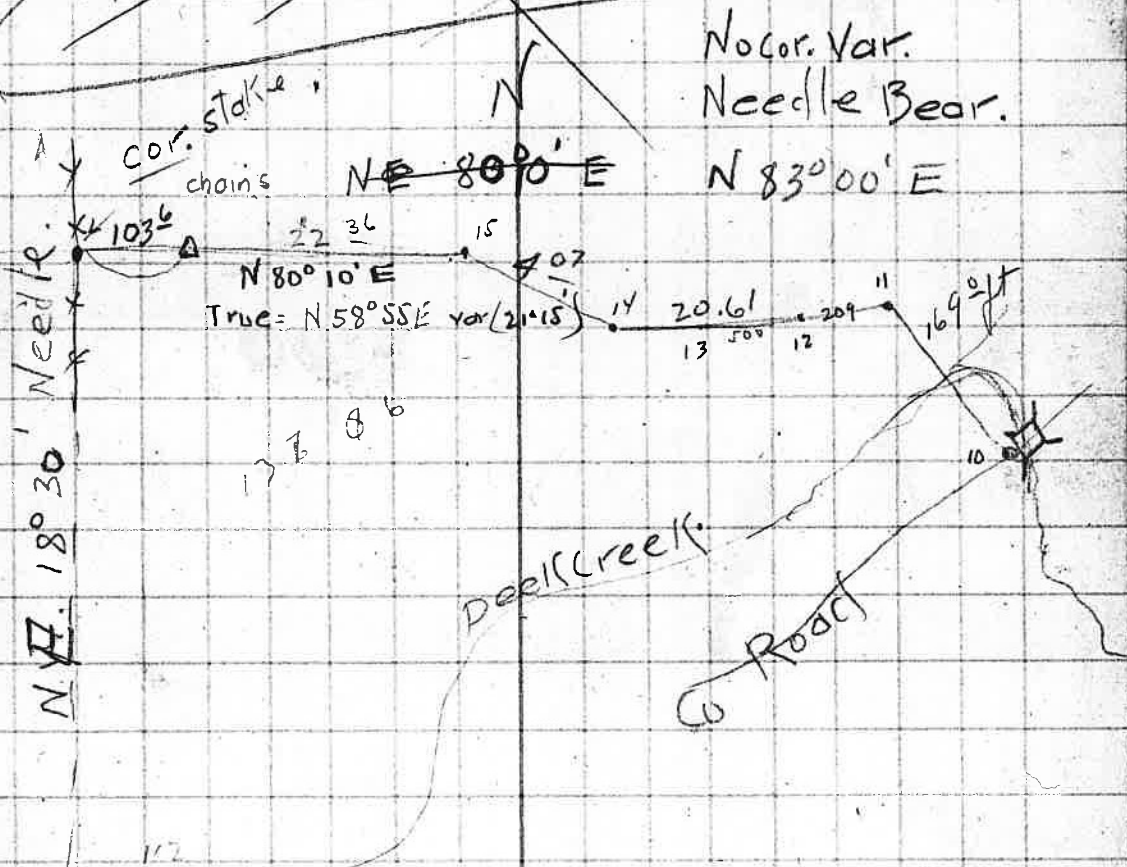 No Cor. Var.
Needle Bear.
N 83° 00' E
N
cor. stake.
chains
NE 80°0' E
103 6
22 36
15
N 80° 10' E
07
True = N 58° 55 E var (21° 15')
14
20.61
13
500
12
209
11
169 0 ft
10
137 86
N 18° 30' Needle.
Deek Creek.
Co Road
112